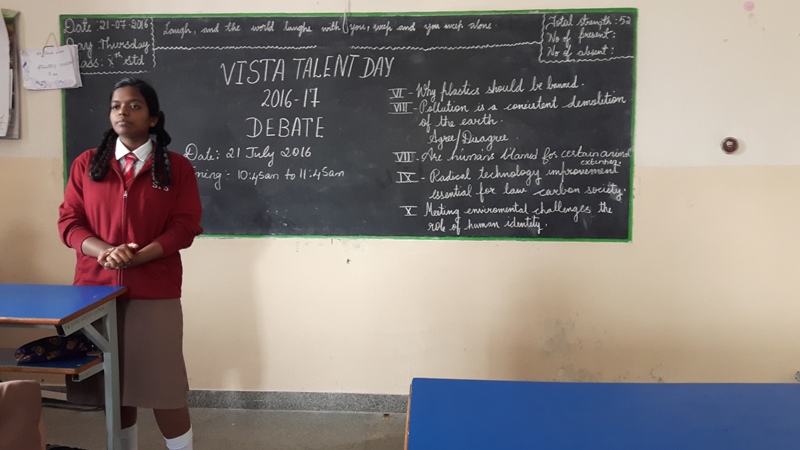 Date : 21-07-2016
Day Thursday
Class : Xth std
Laugh, and the world laughs with you, weep and you weep alone.
Total strength : 52
No of present :
No of absent :
VISTA TALENT DAY
2016-17
DEBATE
Date : 21 July 2016
ming : 10:45am to 11:45am
VI - Why plastics should be banned.
VIII - Pollution is a consistent demolition
of the earth.
Agree/Disagree.
VIII - Are humans blamed for certain animal
extinction.
IX - Radical technology improvement
essential for law carbon society.
X Meeting enviromental challenges the
role of human identity.